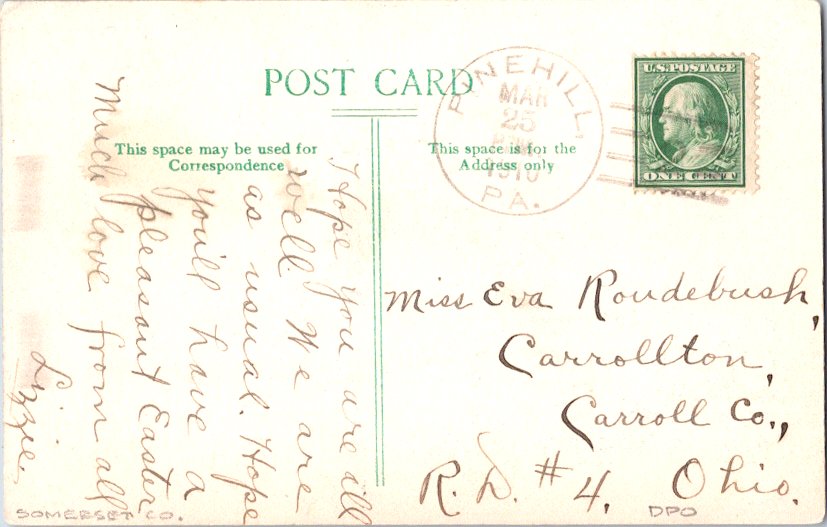 POST CARD
This space may be used for
Correspondence
This space is for the
Address only
PINEHILL,
MAR
25
1910
PA.
U.S. POSTAGE
ONE CENT
Hope you are all
well. We are
as usual. Hope
you'll have a
pleasant Easter.
Much love from all
Lizzie.
Miss Eva Roudebush,
Carrollton,
Carroll Co.,
R.D. #4, Ohio.
SOMERSET CO.
DPO